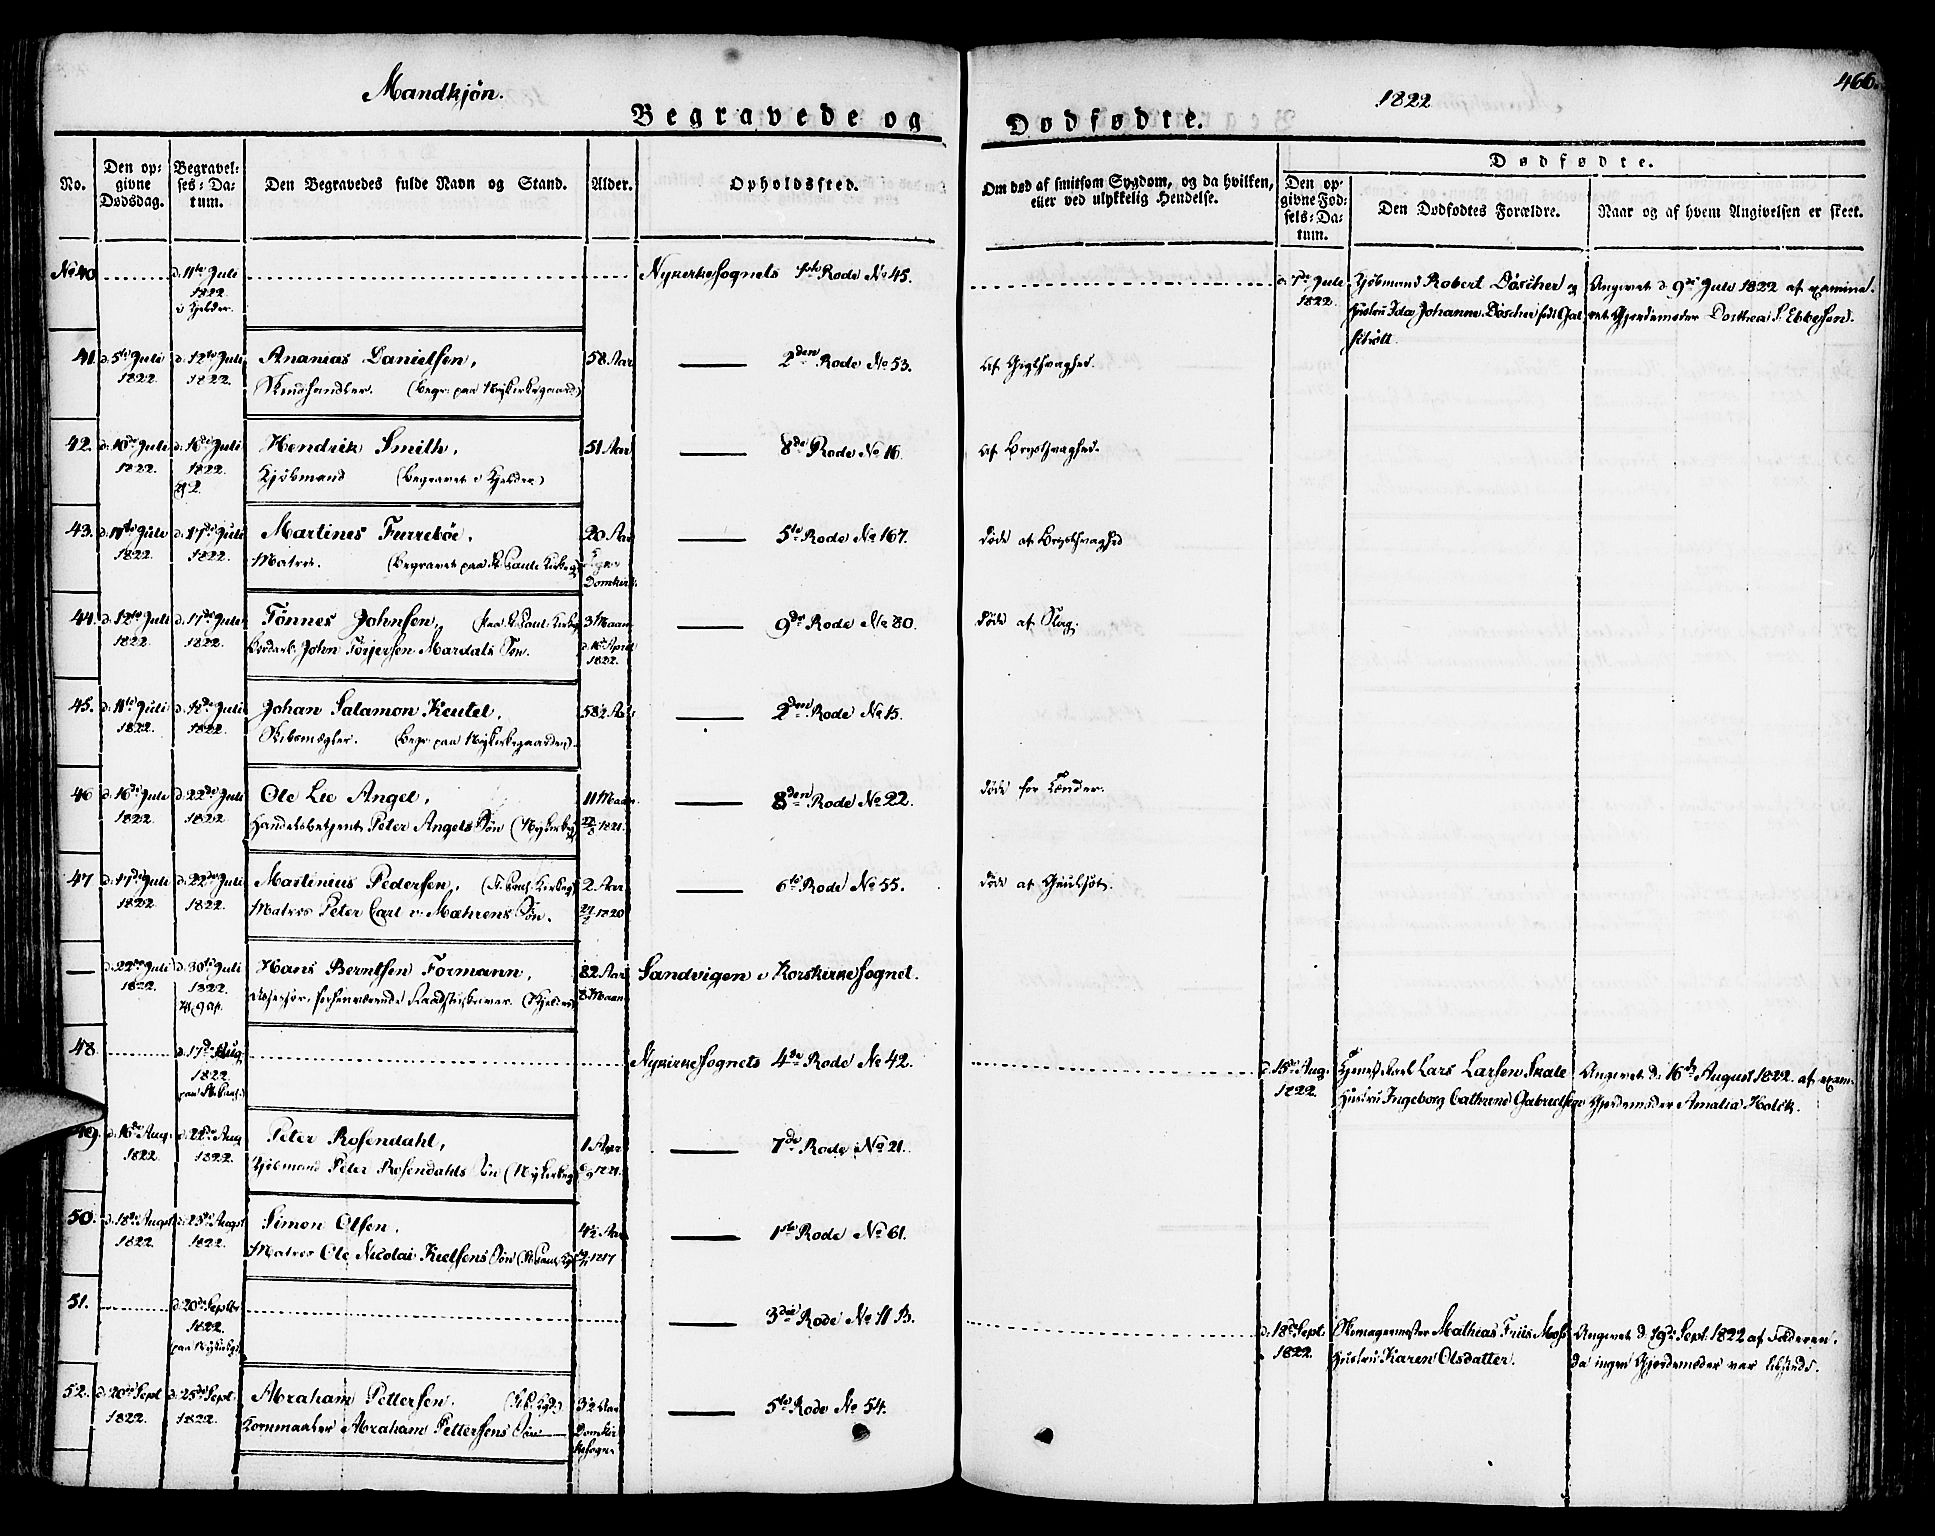 Mandkjön.
1822
466.
Begravede og
Dødfødte.
No.
Den op-
givne
Dødsdag.
Begravel-
ses-Da-
tum.
Den Begravedes fulde Navn og Stand.
Alder.
Opholdssted.
Om død af smitsom Sygdom, og da hvilken,
eller ved ulykkelig Hendelse.
Dødfødte.
Den op-
givne Fød-
sels-Da-
tum.
Den Dødfødtes Forældre.
Naar og af hvem Angivelsen er skeet.
No 40
d. 11te Juli
1822.
i Kjelder.
Nykirkesognets 1ste Rode No 45.
d. 7de Juli
1822.
Kjøbmand Robert Döscher og
Hustru Ida Johanne Döscher
Angivet d. 9de Juli 1822 af examine-
ret Gjordemoder Dorthea S. Ebbesen.
41.
d. 5te Juli
1822.
d. 12te Juli
1822.
Ananias Danielsen,
(begr. paa Nykirkegaard)
58 Aar
2den Rode No 53.
af Gigtsvaghed.
42.
d. 10de Juli
1822.
d. 16de Juli
1822.
Hendrik Smith,
Kjøbmand (begravet i Kjelder)
51 Aar
8de Rode No 16.
af Brystsvaghed.
43.
d. 11te Juli
1822.
d. 17de Juli
1822.
Martines Furreböe,
Matros. (begravet paa St. Pauls Kirkeg.
20 Aar
Domkirk.
5te Rode No 167.
døde af Brystsvaghed
44.
d. 12te Juli
1822.
d. 17de Juli
1822.
Tönnes Johnsen, (paa St. Pauls Kirkeg.
John Torjersen Mardals Søn.
3 Maan
d. 16 April
1822.
9de Rode No 80.
døde af Slag.
45.
d. 11te Juli
1822.
d. 18de Juli
1822.
Johan Salamon Keutel,
Skibsmægler. (begr. paa Nykirkegaarden).
58½ Aar
2den Rode No 15.
46
d. 16de Juli
1822.
d. 22de Juli
1822
Ole Lee Angel,
Handelsbetjent Peter Angels Søn (Nykirkeg)
11 Maan.
1821.
8den Rode No 22.
døde for Tænder.
47
d. 17de Juli
1822.
d. 22de Juli
1822.
Martinius Pedersen, (St. Pauls Kirkeg)
Matros Peter Carl v. Mahrens Søn.
2 Aar
1820
6te Rode No 55.
døde af Guulsot.
d. 22de Juli
1822.
d. 30te Juli
1822
Hans Berntsen Formann,
Assessor, forhenværende Raadstueskriver. (Kjelder)
82 Aar
8 Maan
Sandvigen i Korskirkesognet.
48
d. 17de Aug.
1822
paa St. Pauls.
Nykirkesognets 4de Rode No 42.
d. 15de Aug.
1822.
Lars Larsen Skale
Hustru Ingeborg Cathrine Gabrielsen
Angivet d. 16de August 1822. af exam-
Gjordemoder Amalia Holck.
49.
d. 16de Aug.
1822
d. 22de Aug
1822.
Peter Rosendahl,
Kjøbmand Peter Rosendahls Søn (Nykirkeg)
1 Aar
1821.
7de Rode No 21.
50.
d. 18de Augst
1822.
d. 23de Augst
1822.
Simon Olsen,
Matros Ole Nicolai Kielsens Søn (St. Pauls Kg
4½ Aar
1817
1ste Rode No 61.
51.
d. 20de Septbr
1822.
paa Nykirkegd.
3die Rode No 11 B.
d. 18de Sept.
1822.
Skomagermester Mathias Friis Moss
Hustru Karen Olsdatter.
Angivet d. 19de Sept. 1822 af Faderen.
da ingen Gjordemoder var tilstede.
52.
d. 20de Sept
1822.
d. 25de Sept.
1822.
Abraham Pettersen.
Kornmaaler Abraham Pettersens Søn
3½ Aar
Domkir
kesogn
5te Rode No 54.